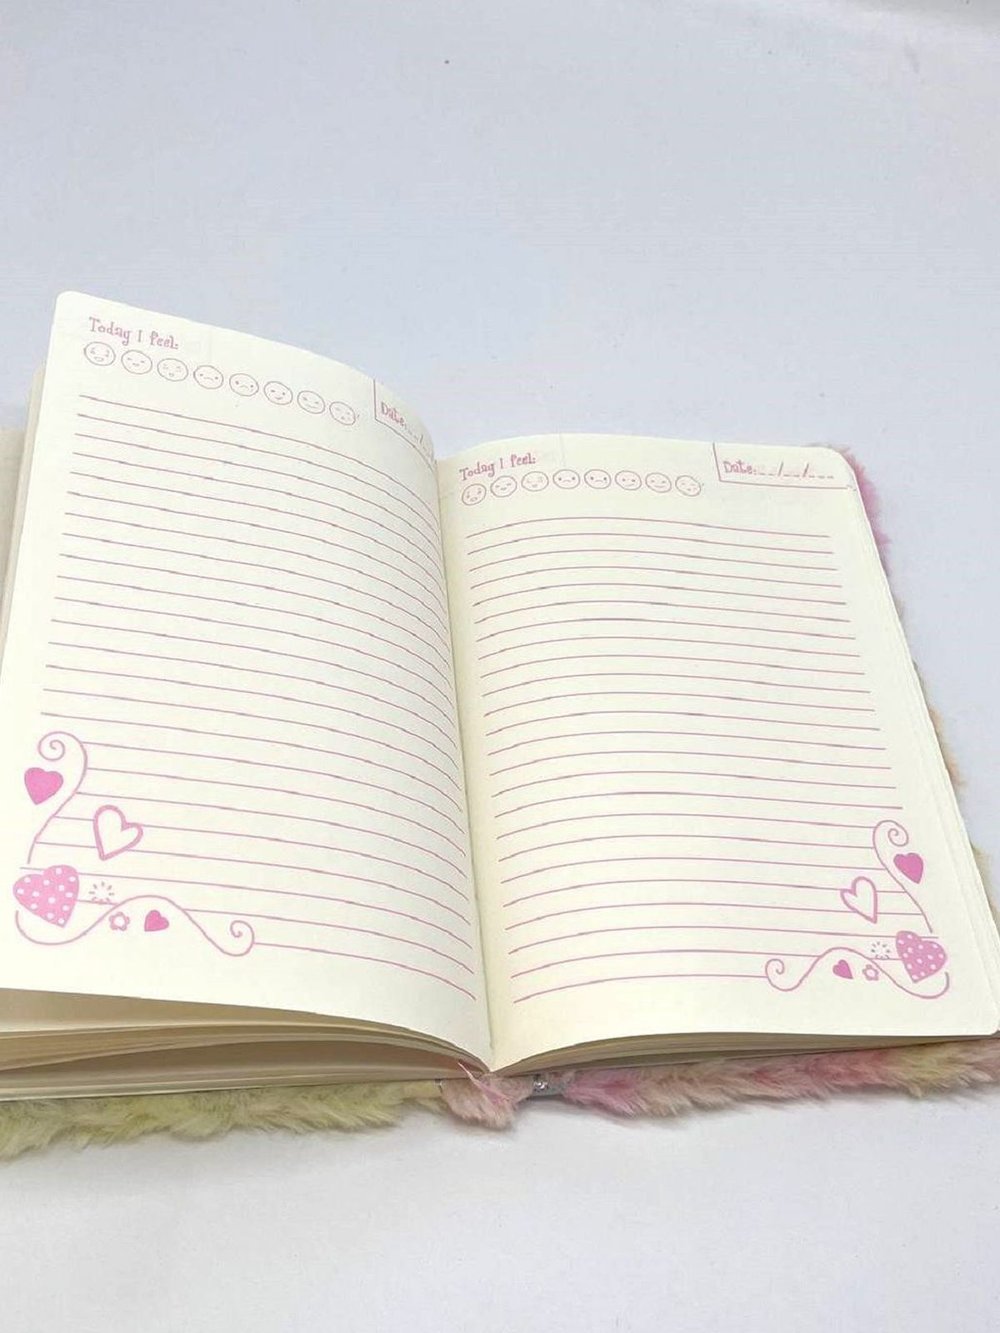 Today I feel:
Date:__/
Today I feel:
Date:__/__/___